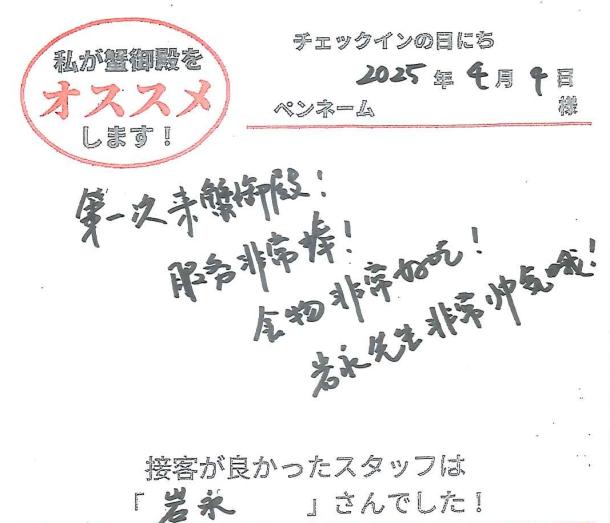 私が蟹御殿を
オススメ
します！
チェックインの日にち
2025年4月9日
ペンネーム 様
第一次来蟹御殿！
服务非常棒！
食物非常好吃！
岩永先生非常帅气哦！
接客が良かったスタッフは
「岩永」さんでした！